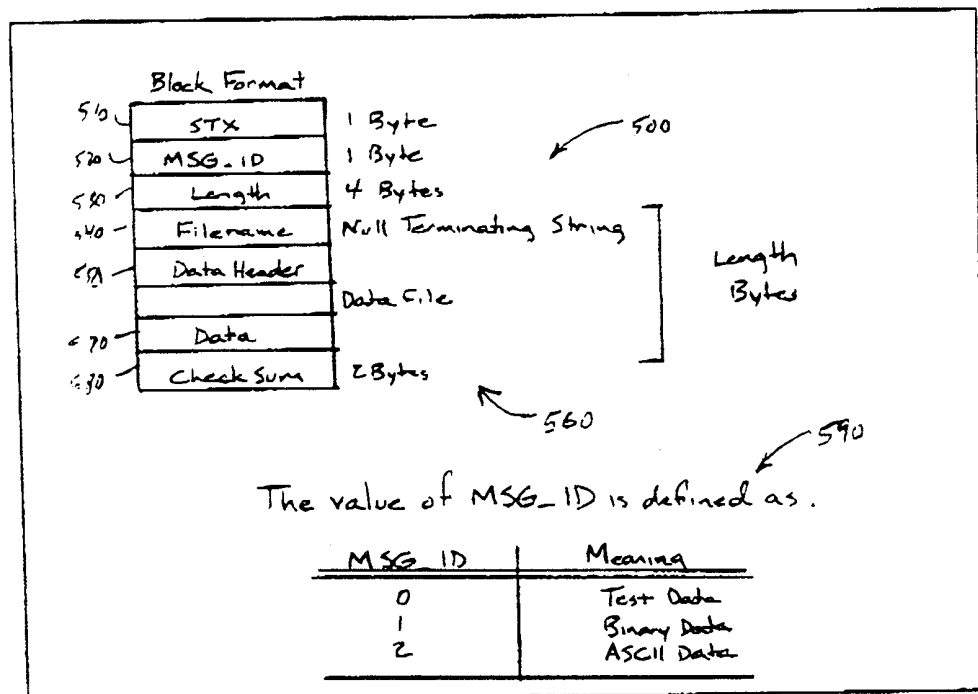 Block Format
510 STX 1 Byte
500
520 MSG_ID 1 Byte
Length 4 Bytes
540 Filename Null Terminating String
Data Header
Length
Bytes
Data File
Data
Check Sum 2 Bytes
560
590
The value of MSG_ID is defined as.
MSG_ID Meaning
0 Test Data
1 Binary Data
2 ASCII Data